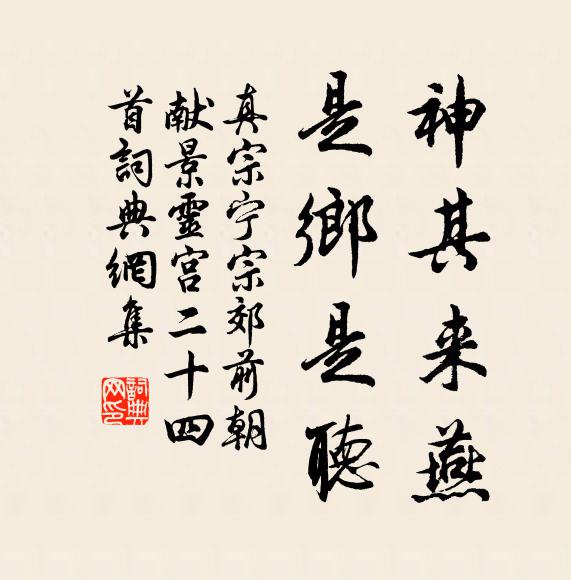 神其来燕
是鄉是聽
真宗宁宗郊前朝
献景靈宫二十四
首詞典網集
詞典网印